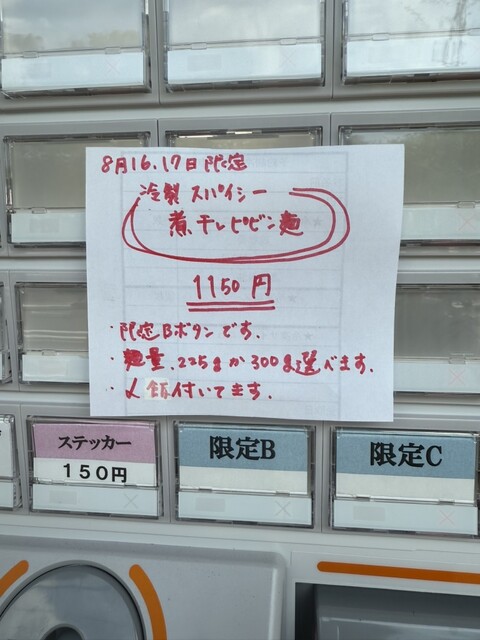 8月16.17日限定
冷製スパイシー
煮干しビビン麺
1150円
・限定Bボタンです.
・麺量.225gか300g選べます.
・〆飯付いてます.
ステッカー
150円
限定B
限定C